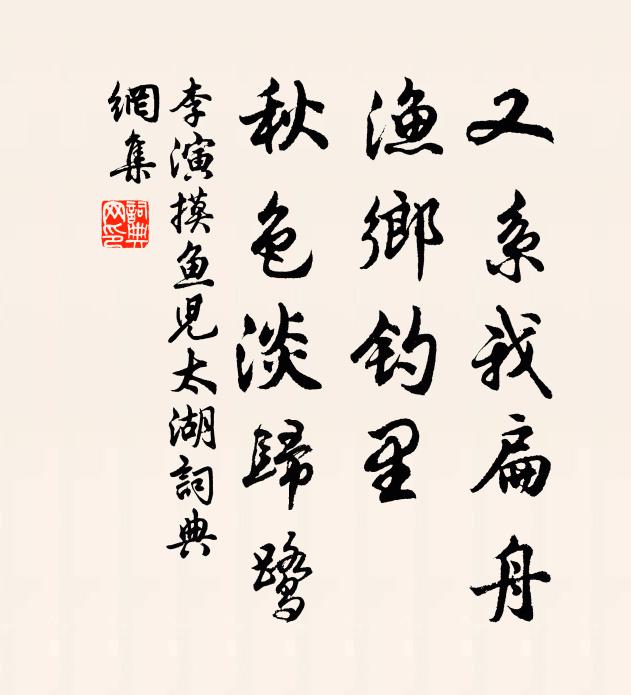 又系我扁舟
渔鄉钓里
秋色淡歸鷺
李演摸鱼児太湖詞典
網集
詞典
网印